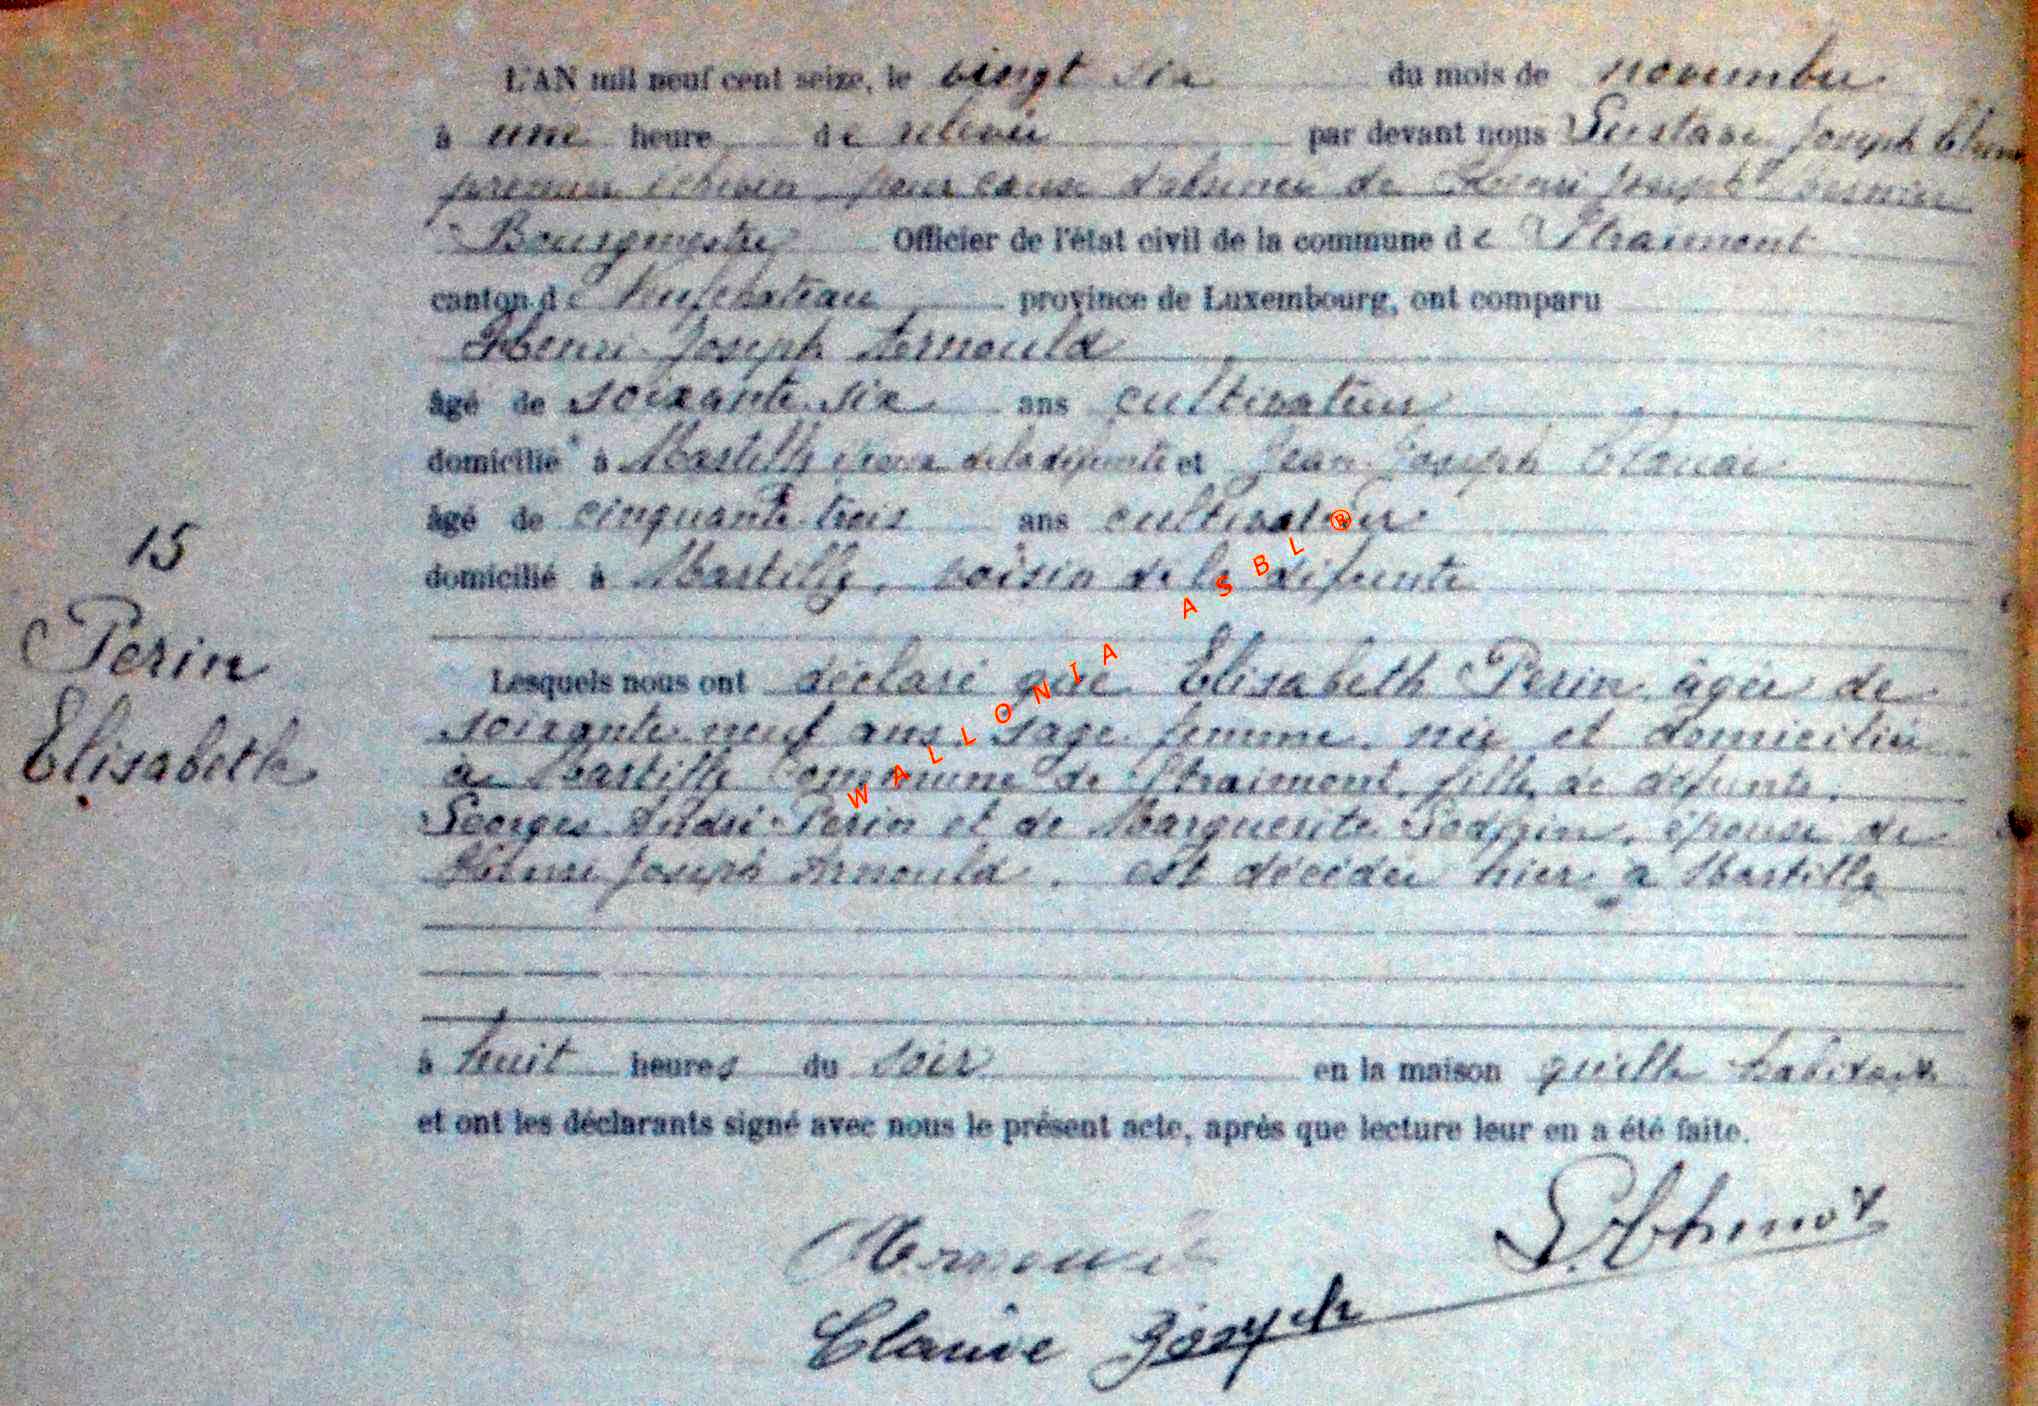 L'AN mil neuf cent seize, le vingt six du mois de novembre
à une heure de relevée par devant nous Gustave Joseph
premier échevin, pour cause d'absence de Henri Joseph
Bourgmestre Officier de l'état civil de la commune de Straimont
canton de Neufchateau province de Luxembourg, ont comparu
Henri Joseph Arnould
âgé de soixante six ans cultivateur
domicilié à Martilly époux de la défunte et Jean Joseph
âgé de cinquante trois ans cultivateur
domicilié à Martilly, voisin de la défunte
15
Perin
Elisabeth
Lesquels nous ont déclaré que Elisabeth Perin âgée de
soixante neuf ans, sage femme, née et domiciliée
à Martilly Commune de Straimont, fille de défunts,
Georges André Perin et de Marguerite épouse de
Henri Joseph Arnould, est décédée hier à Martilly
à huit heures du soir en la maison qu'elle habitait
et ont les déclarants signé avec nous le présent acte, après que lecture leur en a été faite.
Arnould
Joseph
WALLONIA ASBL ®